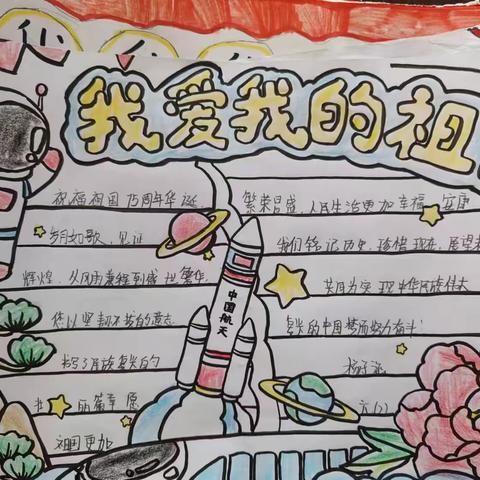 我爱我的祖
祝福祖国75周年华诞,
岁月如歌,见证
辉煌,从风雨兼程到盛世繁华,
您以坚韧不拔的意志
书写了民族复兴的
壮丽篇章,愿
祖国更加
繁荣昌盛,人民生活更加幸福、安康
我们铭记历史,珍惜现在,展望未
共同为实现中华民族伟大
复兴的中国梦而努力奋斗!
杨
六(2)
中国航天